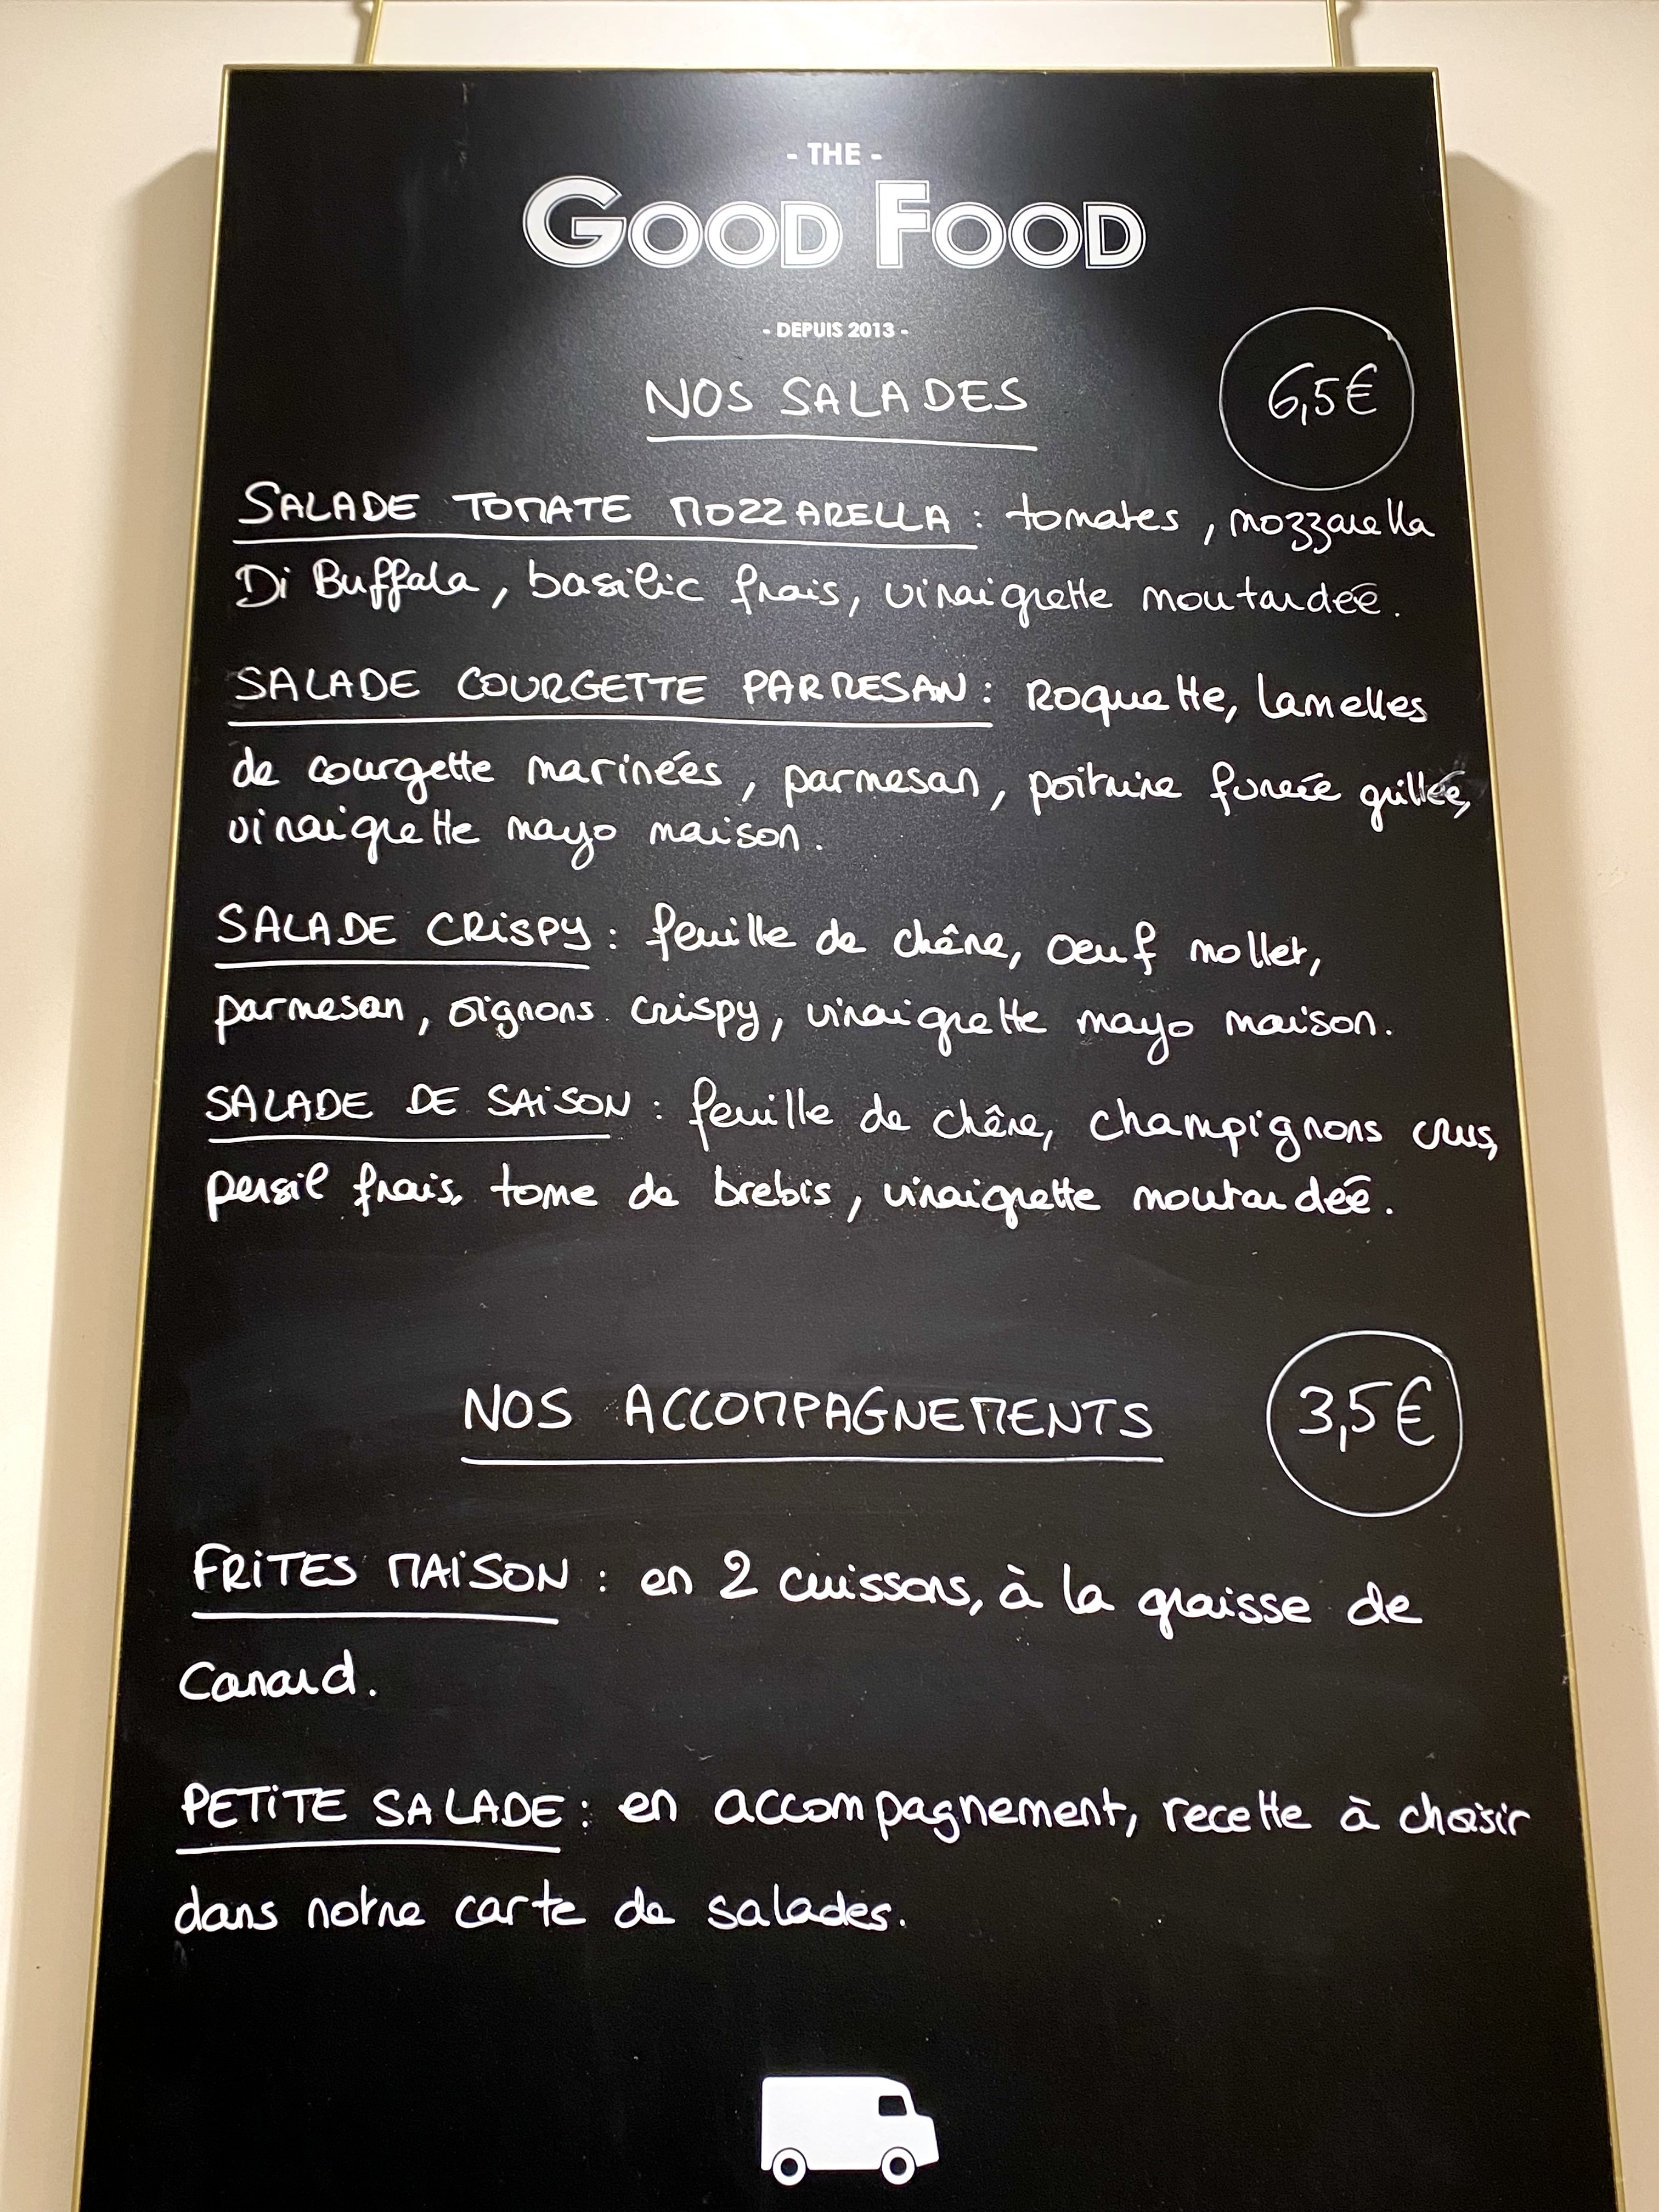 - THE -
GOOD FOOD
- DEPUIS 2013 -
NOS SALADES
6,5€
SALADE TOMATE MOZZARELLA : tomates, mozzarella
Di Buffala, basilic frais, vinaigrette moutardée.
SALADE COURGETTE PARMESAN : Roquette, lamelles
de courgette marinées, parmesan, poitrine fumée grillée,
vinaigrette mayo maison.
SALADE CRISPY : feuille de chêne, oeuf mollet,
parmesan, oignons crispy, vinaigrette mayo maison.
SALADE DE SAISON : feuille de chêne, champignons crus,
persil frais, tome de brebis, vinaigrette moutardée.
NOS ACCOMPAGNEMENTS
3,5€
FRITES MAISON : en 2 cuissons, à la graisse de
Canard.
PETITE SALADE : en accompagnement, recette à choisir
dans notre carte de salades.